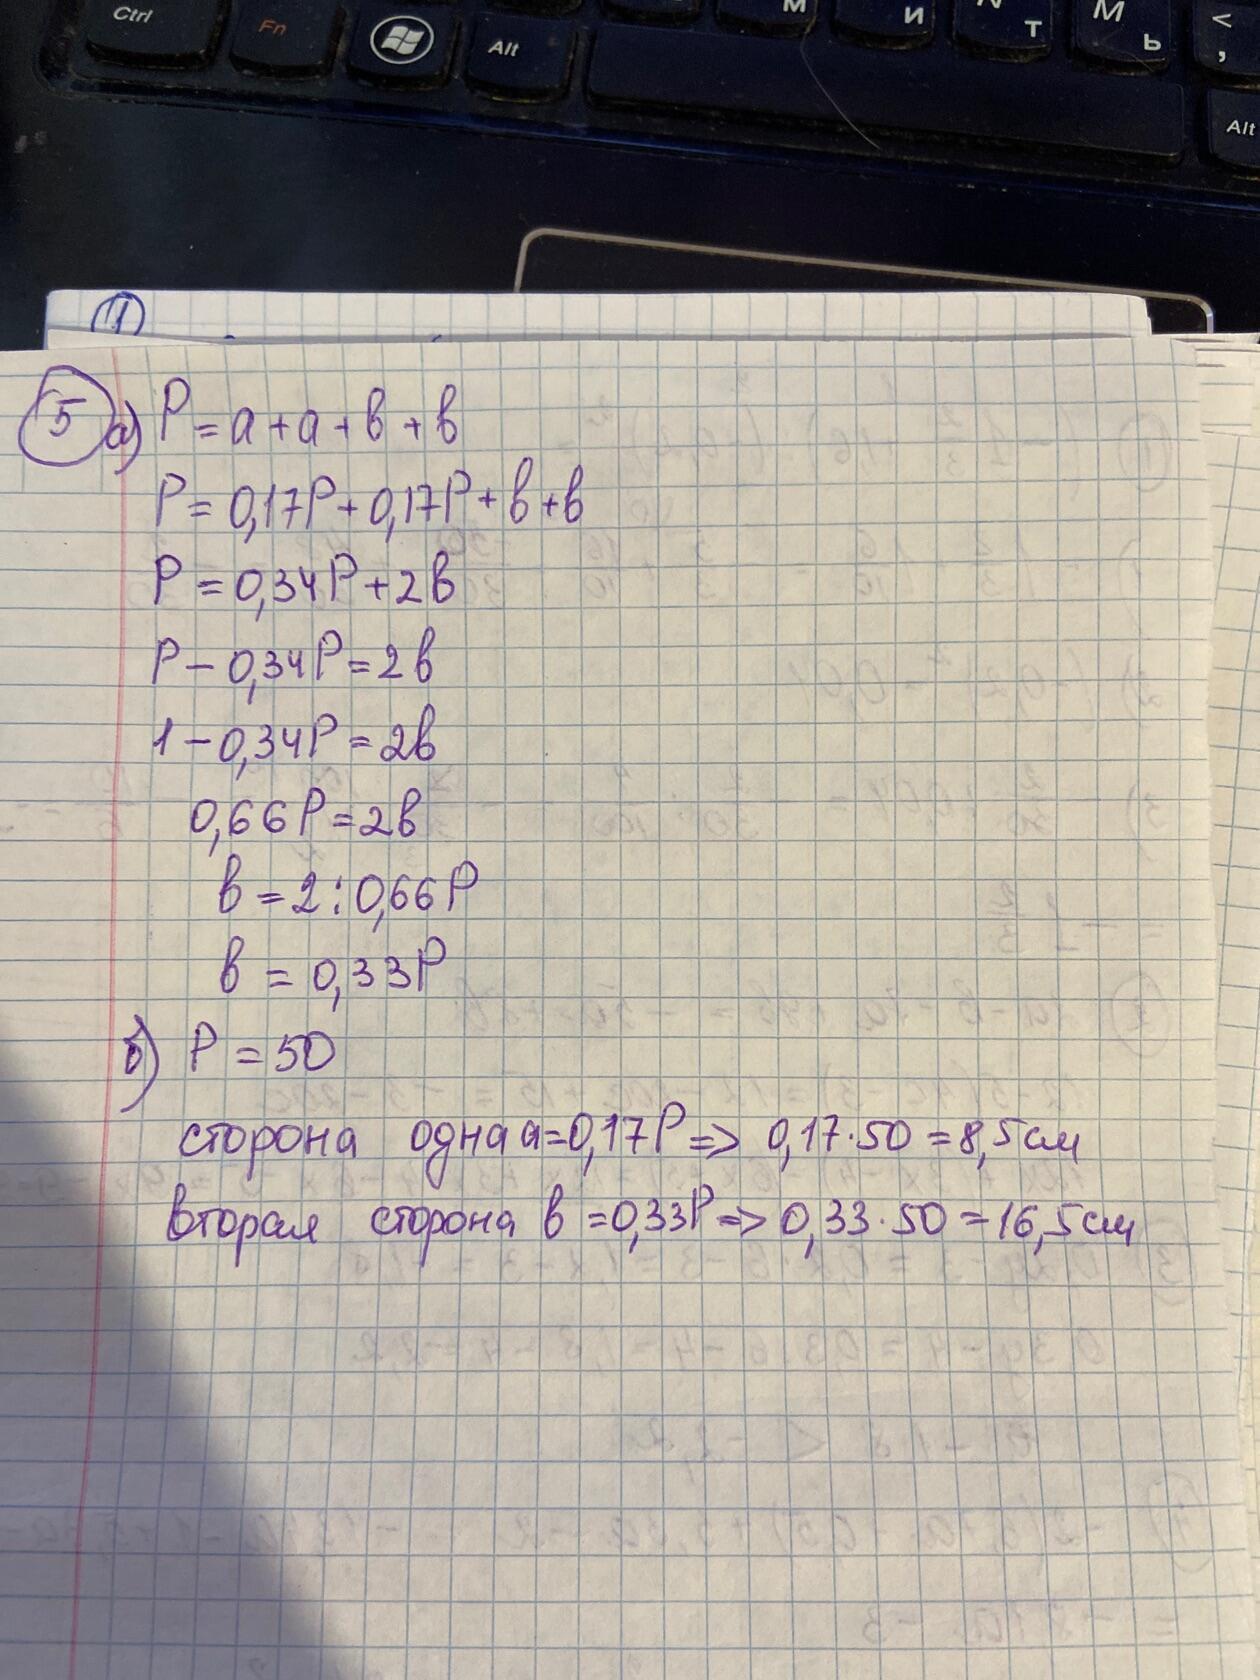 Ctrl
Fn
Alt
М
И
Т
М
Ь
<
,
Alt
1
5 а) P = a + a + в + в
P = 0,17P + 0,17P + в + в
P = 0,34P + 2в
P - 0,34P = 2в
1 - 0,34P = 2в
0,66P = 2в
в = 2 : 0,66P
в = 0,33P
б) P = 50
сторона одна a = 0,17P => 0,17 · 50 = 8,5 см
вторая сторона в = 0,33P => 0,33 · 50 = 16,5 см